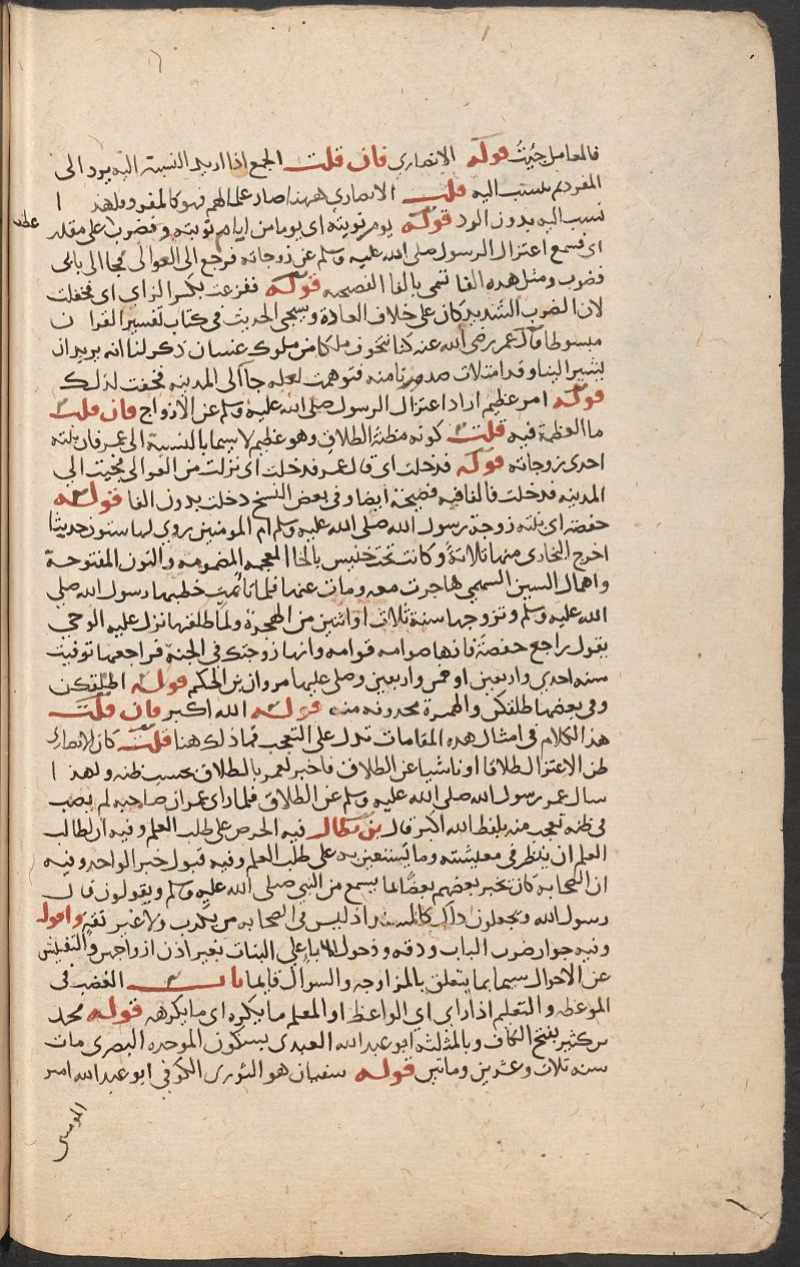 فالعامل جئت قوله الانصاري فان قلت الجمع اذا اريد النسبة اليه يرد الى
المفرد ثم ينسب اليه قلت الانصاري ههنا صار علما لهم فهو كالمفرد فلهذا
نسب اليه بدون الرد قوله يوم نوبته اى يوما من ايام نوبته وفضرب على مقدر
عطف
اى فسمع اعتزال الرسول صلى الله عليه وسلم عن زوجاته فرجع الى العوالى فجا الى بابى
فضرب ومثل هذه الفا تسمى بالفا الفصيحه قوله ففزعت بكسر الزاي اى فخفت
لان الضرب الشديد كان على خلاف العادة وسيجى الحديث فى كتاب تفسير القران
مبسوطا قال عمر رضى الله عنه كنا نتخوف ملكا من ملوك غسان ذكر لنا انه يريد ان
يسير الينا وقد امتلات صدورنا منه فتوهمت لعله جا الى المدينه فخفت لذلك
قوله امر عظيم اراد اعتزال الرسول صلى الله عليه وسلم عن الازواج فان قلت
ما العظمة فيه قلت كونه مظنة الطلاق وهو عظيم لا سيما بالنسبة الى عمر فان بنته
احدى زوجاته قوله فدخلت اى قال عمر فدخلت اى نزلت من العوالى فجيت الى
المدينه فدخلت فالفا فيه فصيحة ايضا وفى بعض النسخ دخلت بدون الفا قوله
حفصه اى بنته زوجة رسول الله صلى الله عليه وسلم ام المومنين روي لها ستون حديثا
اخرج البخارى منها ثلاثة وكانت تحت خنيس بالخا المعجمه المضمومه والنون المفتوحة
واهمال السين السهمى هاجرت معه ومات عنها فلما تايمت خطبها رسول الله صلى
الله عليه وسلم وتزوجها سنة ثلاث او اثنين من الهجرة ولما طلقها نزل عليه الوحى
يقول راجع حفصة فانها صوامه قوامه وانها زوجتك فى الجنة فراجعها توفيت
سنه احدى واربعين او خمس واربعين وصلى عليها مروان بن الحكم قوله اطلقكن
وفى بعضها طلقكن والهمزة محذوفه منه قوله الله اكبر فان قلت
هذا الكلام فى امثال هذه المقامات تدل على التعجب فما ذلك هنا قلت كان الانصارى
ظن الاعتزال طلاقا او ناشيا عن الطلاق فاخبر لعمر بالطلاق بحسب ظنه ولهذا
سال عمر رسول الله صلى الله عليه وسلم عن الطلاق فلما راى عمر ان صاحبه لم يصب
فى ظنه تعجب منه بلفظ الله اكبر قال بن بطال فيه الحرص على طلب العلم وفيه ان لطالب
العلم ان ينظر فى معيشته وما يستعين به على طلب العلم وفيه قبول خبر الواحد وفيه
ان الصحابه كان يخبر بعضهم بعضا بما يسمع من النبى صلى الله عليه وسلم ويقولون قال
رسول الله ويجعلون ذلك كالمسند اذ ليس فى الصحابه من يكذب ولا غير ثقة واقول
وفيه جواز ضرب الباب ودقه ودخول الابا على البنات بغير اذن ازواجهن والتفتيش
عن الاحوال سيما بما يتعلق بالمزاوجه والسوال قايما باب الغضب فى
الموعظه والتعليم اذا راى اى الواعظ او المعلم ما يكره اى ما يكرهه قوله محمد
بن كثير بفتح الكاف وبالمثلثة ابو عبد الله العبدى بسكون الموحده البصرى مات
سنه ثلاث وعشرين وماتين قوله سفيان هو الثورى الكوفى ابو عبد الله امير
المومنين